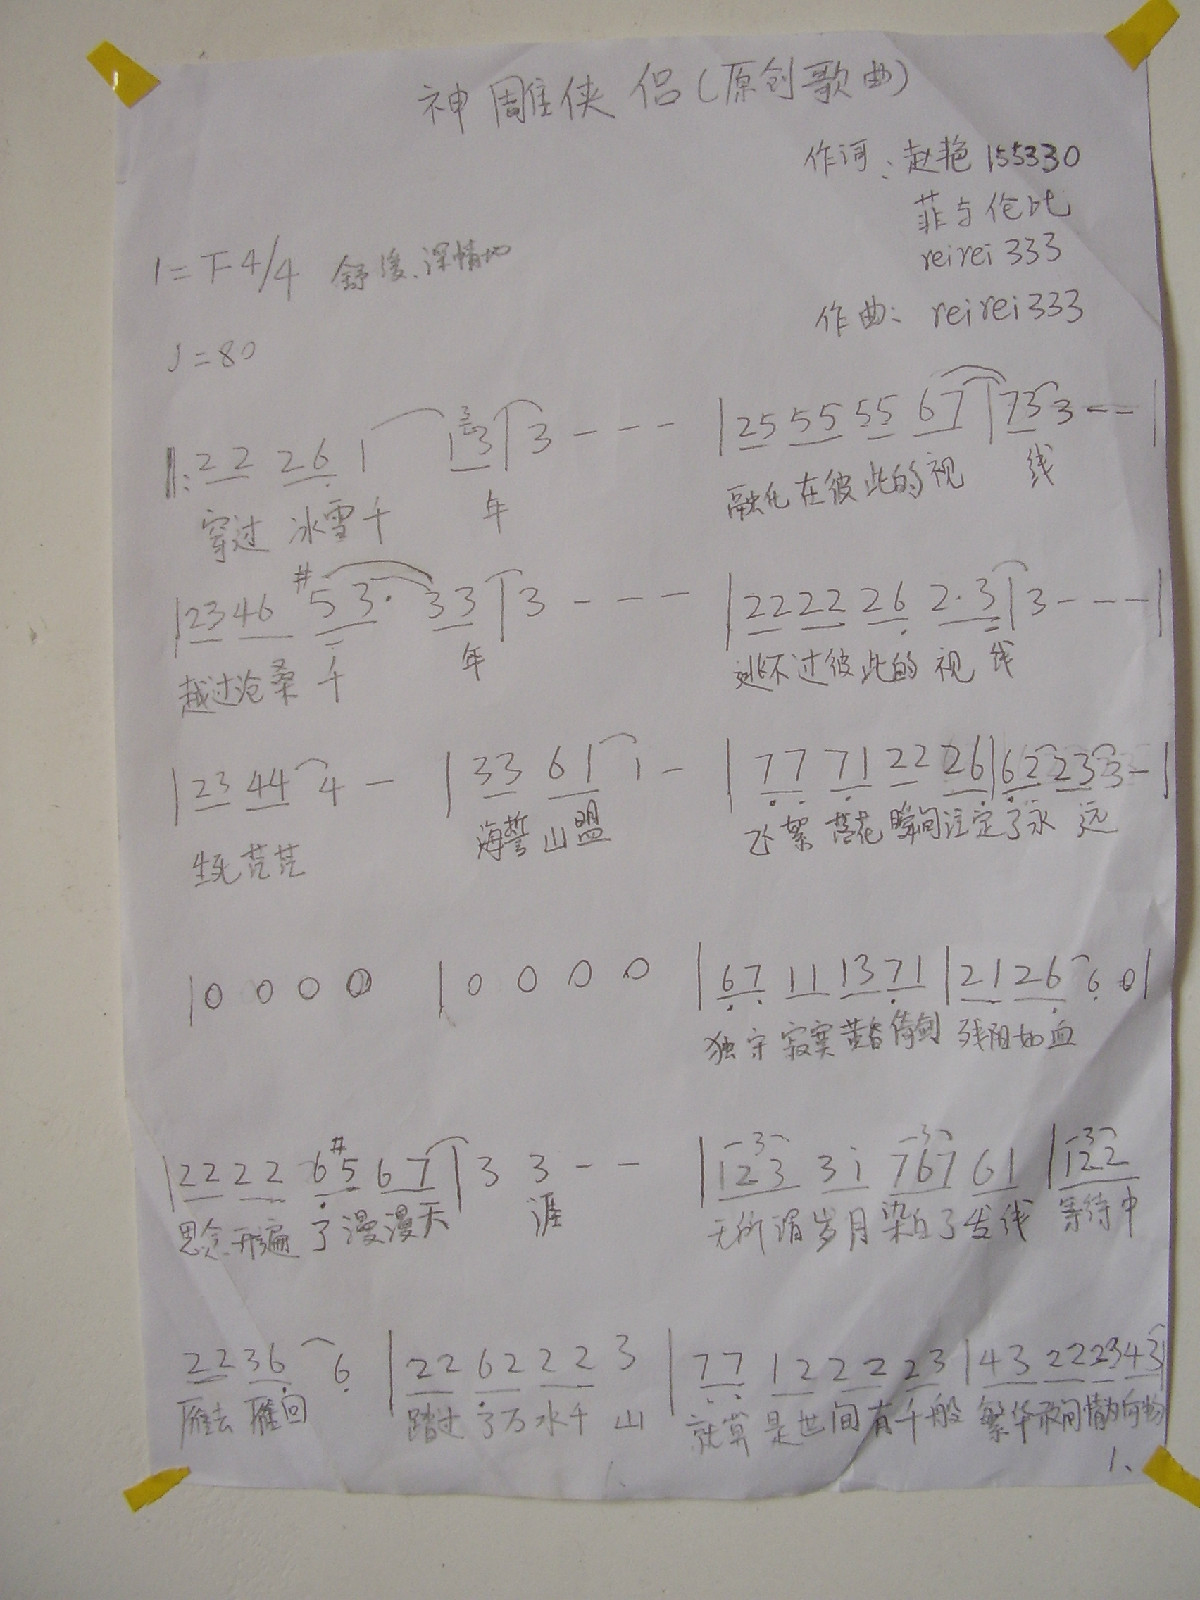 神雕侠侣(原创歌曲)
作词:赵艳155330
菲与伦比
reirei333
1=F 4/4 舒缓、深情地
作曲: reirei333
♩=80
‖:22 26 1 13|3 - - - |25 55 55 67|73 3 - - |
穿过 冰雪千 年 融化在彼此的视 线
|23 46 #5 3· 33|3 - - - |22 22 26 2·3|3 - - - |
越过沧桑 千 年 逃不过彼此的视 线
|23 44 4 - |33 61 1 - |77 71 22 26|62 23 3 - |
生死茫茫 海誓山盟 飞絮 落花 瞬间注定了永 远
|0 0 0 0 |0 0 0 0 |67 11 13 71|21 26 6 0|
独守 寂寞 黄昏 倚剑 残阳如血
|22 22 6#5 67|3 3 - - |123 31 767 61|122
思念 形遍 了漫漫天 涯 无所谓岁月染白了发线 等待中
22 36 6 |22 62 22 3 |77 12 22 23|43 22 23 43|
雁去 雁回 踏过 了万水千 山 就算 是世间有千般 繁华
1、